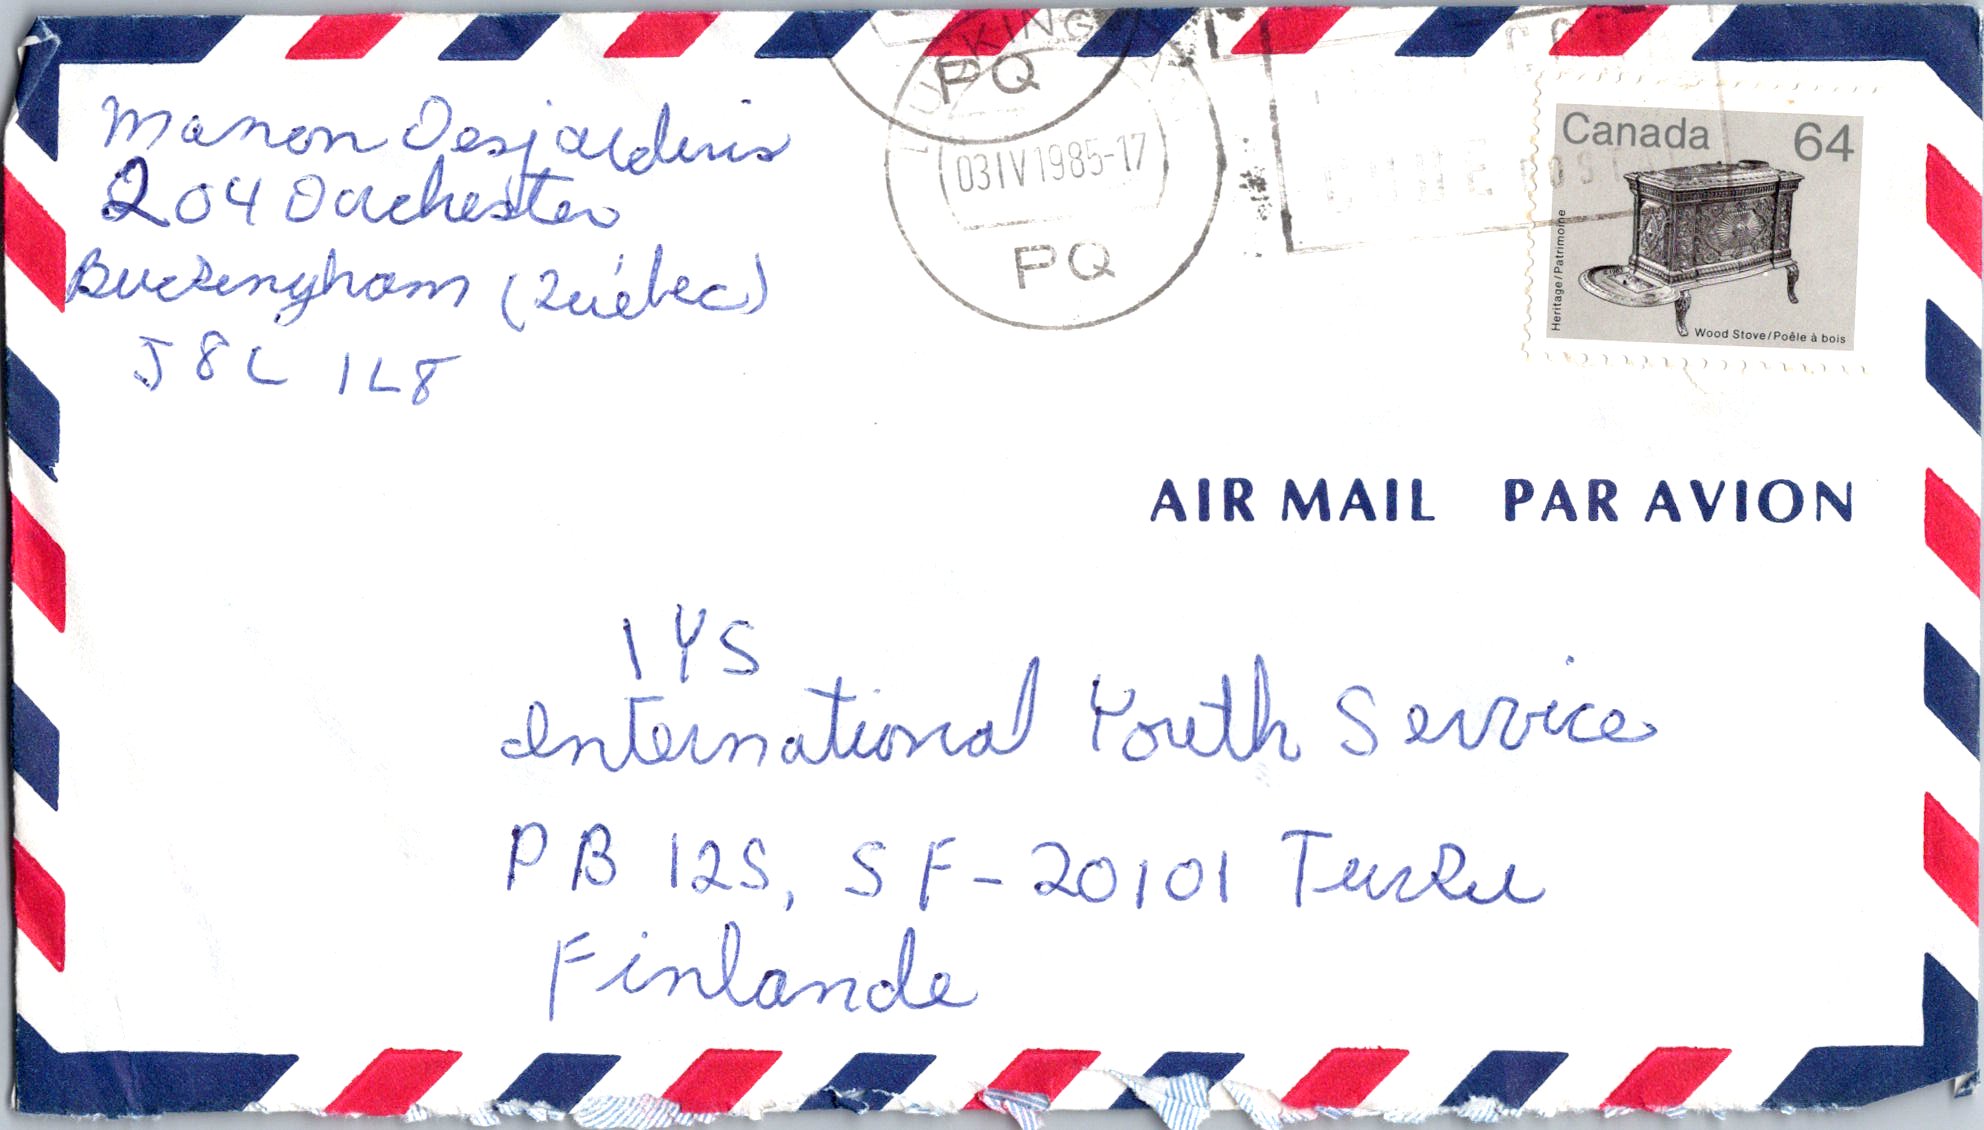 Manon Desjardins
204 Dorchester
Buckingham (Québec)
J8L 1L8
KING
PQ
03 IV 1985-17
PQ
Canada 64
Heritage/Patrimoine
Wood Stove/Poêle à bois
AIR MAIL PAR AVION
IYS
International Youth Service
PB 125, SF-20101 Turku
Finlande